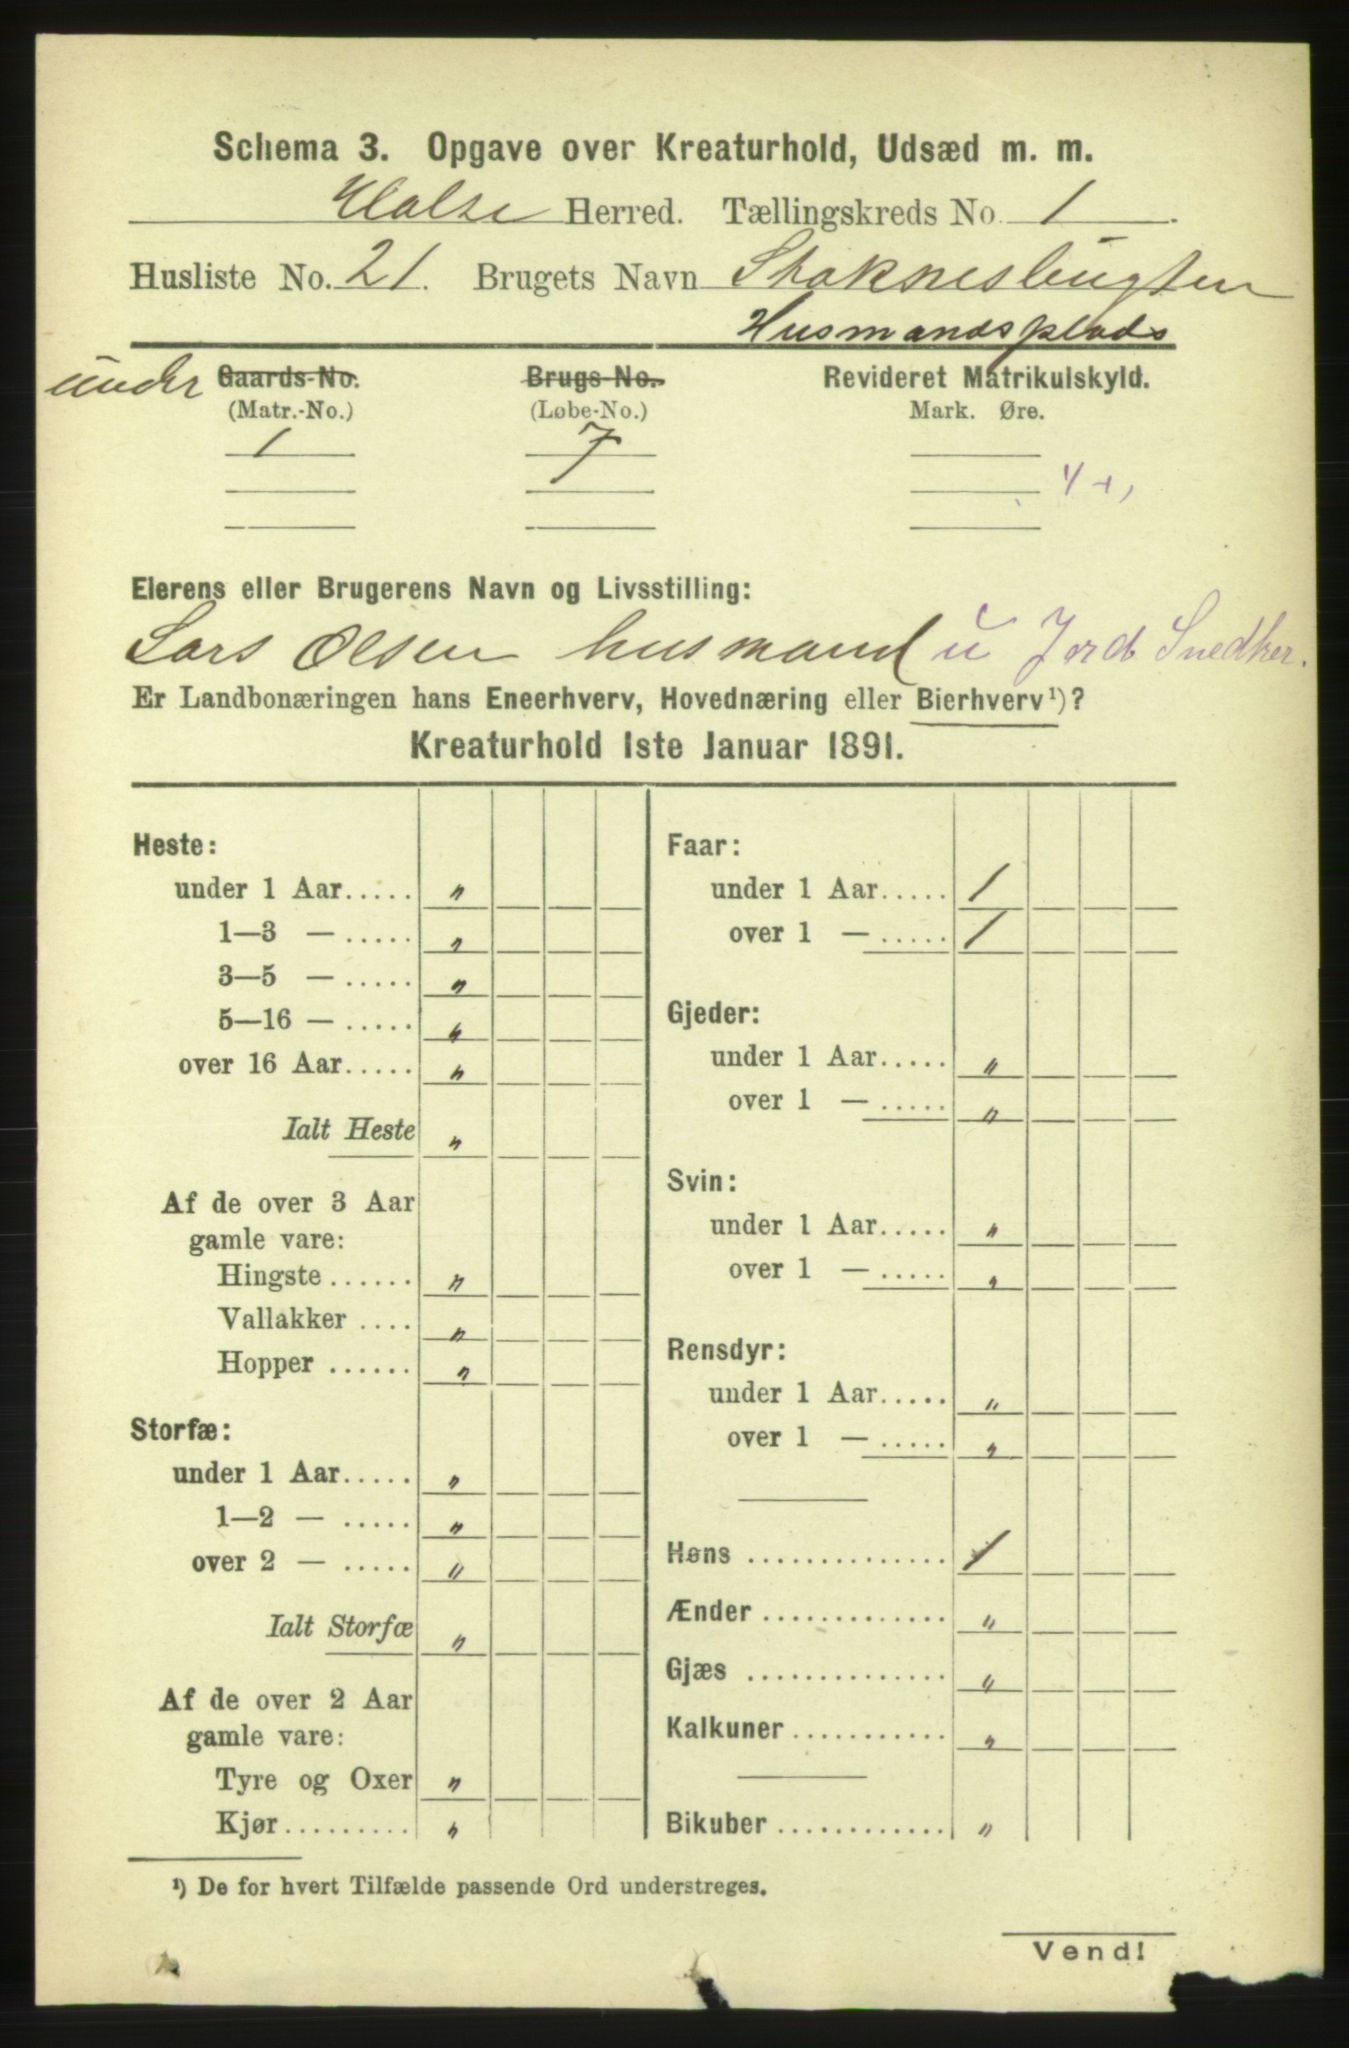 Schema 3. Opgave over Kreaturhold, Udsæd m. m.
Halse Herred. Tællingskreds No. 1.
Husliste No. 21. Brugets Navn Stoknesbugten
Husmandsplads
under Gaards-No. Brugs-No. Revideret Matrikulskyld.
(Matr.-No.) (Løbe-No.) Mark. Øre.
1 7
Eierens eller Brugerens Navn og Livsstilling:
Lars Olsen husmand u Jord Snedker.
Er Landbonæringen hans Eneerhverv, Hovednæring eller Bierhverv¹)?
Kreaturhold 1ste Januar 1891.
Heste:
under 1 Aar..... "
1—3 — ..... "
3—5 — ..... "
5—16 — ..... "
over 16 Aar..... "
Ialt Heste "
Af de over 3 Aar
gamle vare:
Hingste...... "
Vallakker .... "
Hopper ...... "
Storfæ:
under 1 Aar..... "
1—2 — ..... "
over 2 — ..... "
Ialt Storfæ "
Af de over 2 Aar
gamle vare:
Tyre og Oxer "
Kjør......... "
Faar:
under 1 Aar..... 1
over 1 — ..... 1
Gjeder:
under 1 Aar..... "
over 1 — ..... "
Svin:
under 1 Aar..... "
over 1 — ..... "
Rensdyr:
under 1 Aar..... "
over 1 — ..... "
Høns .............. 1
Ænder ............. "
Gjæs .............. "
Kalkuner........... "
Bikuber ............ "
¹) De for hvert Tilfælde passende Ord understreges.
Vend!